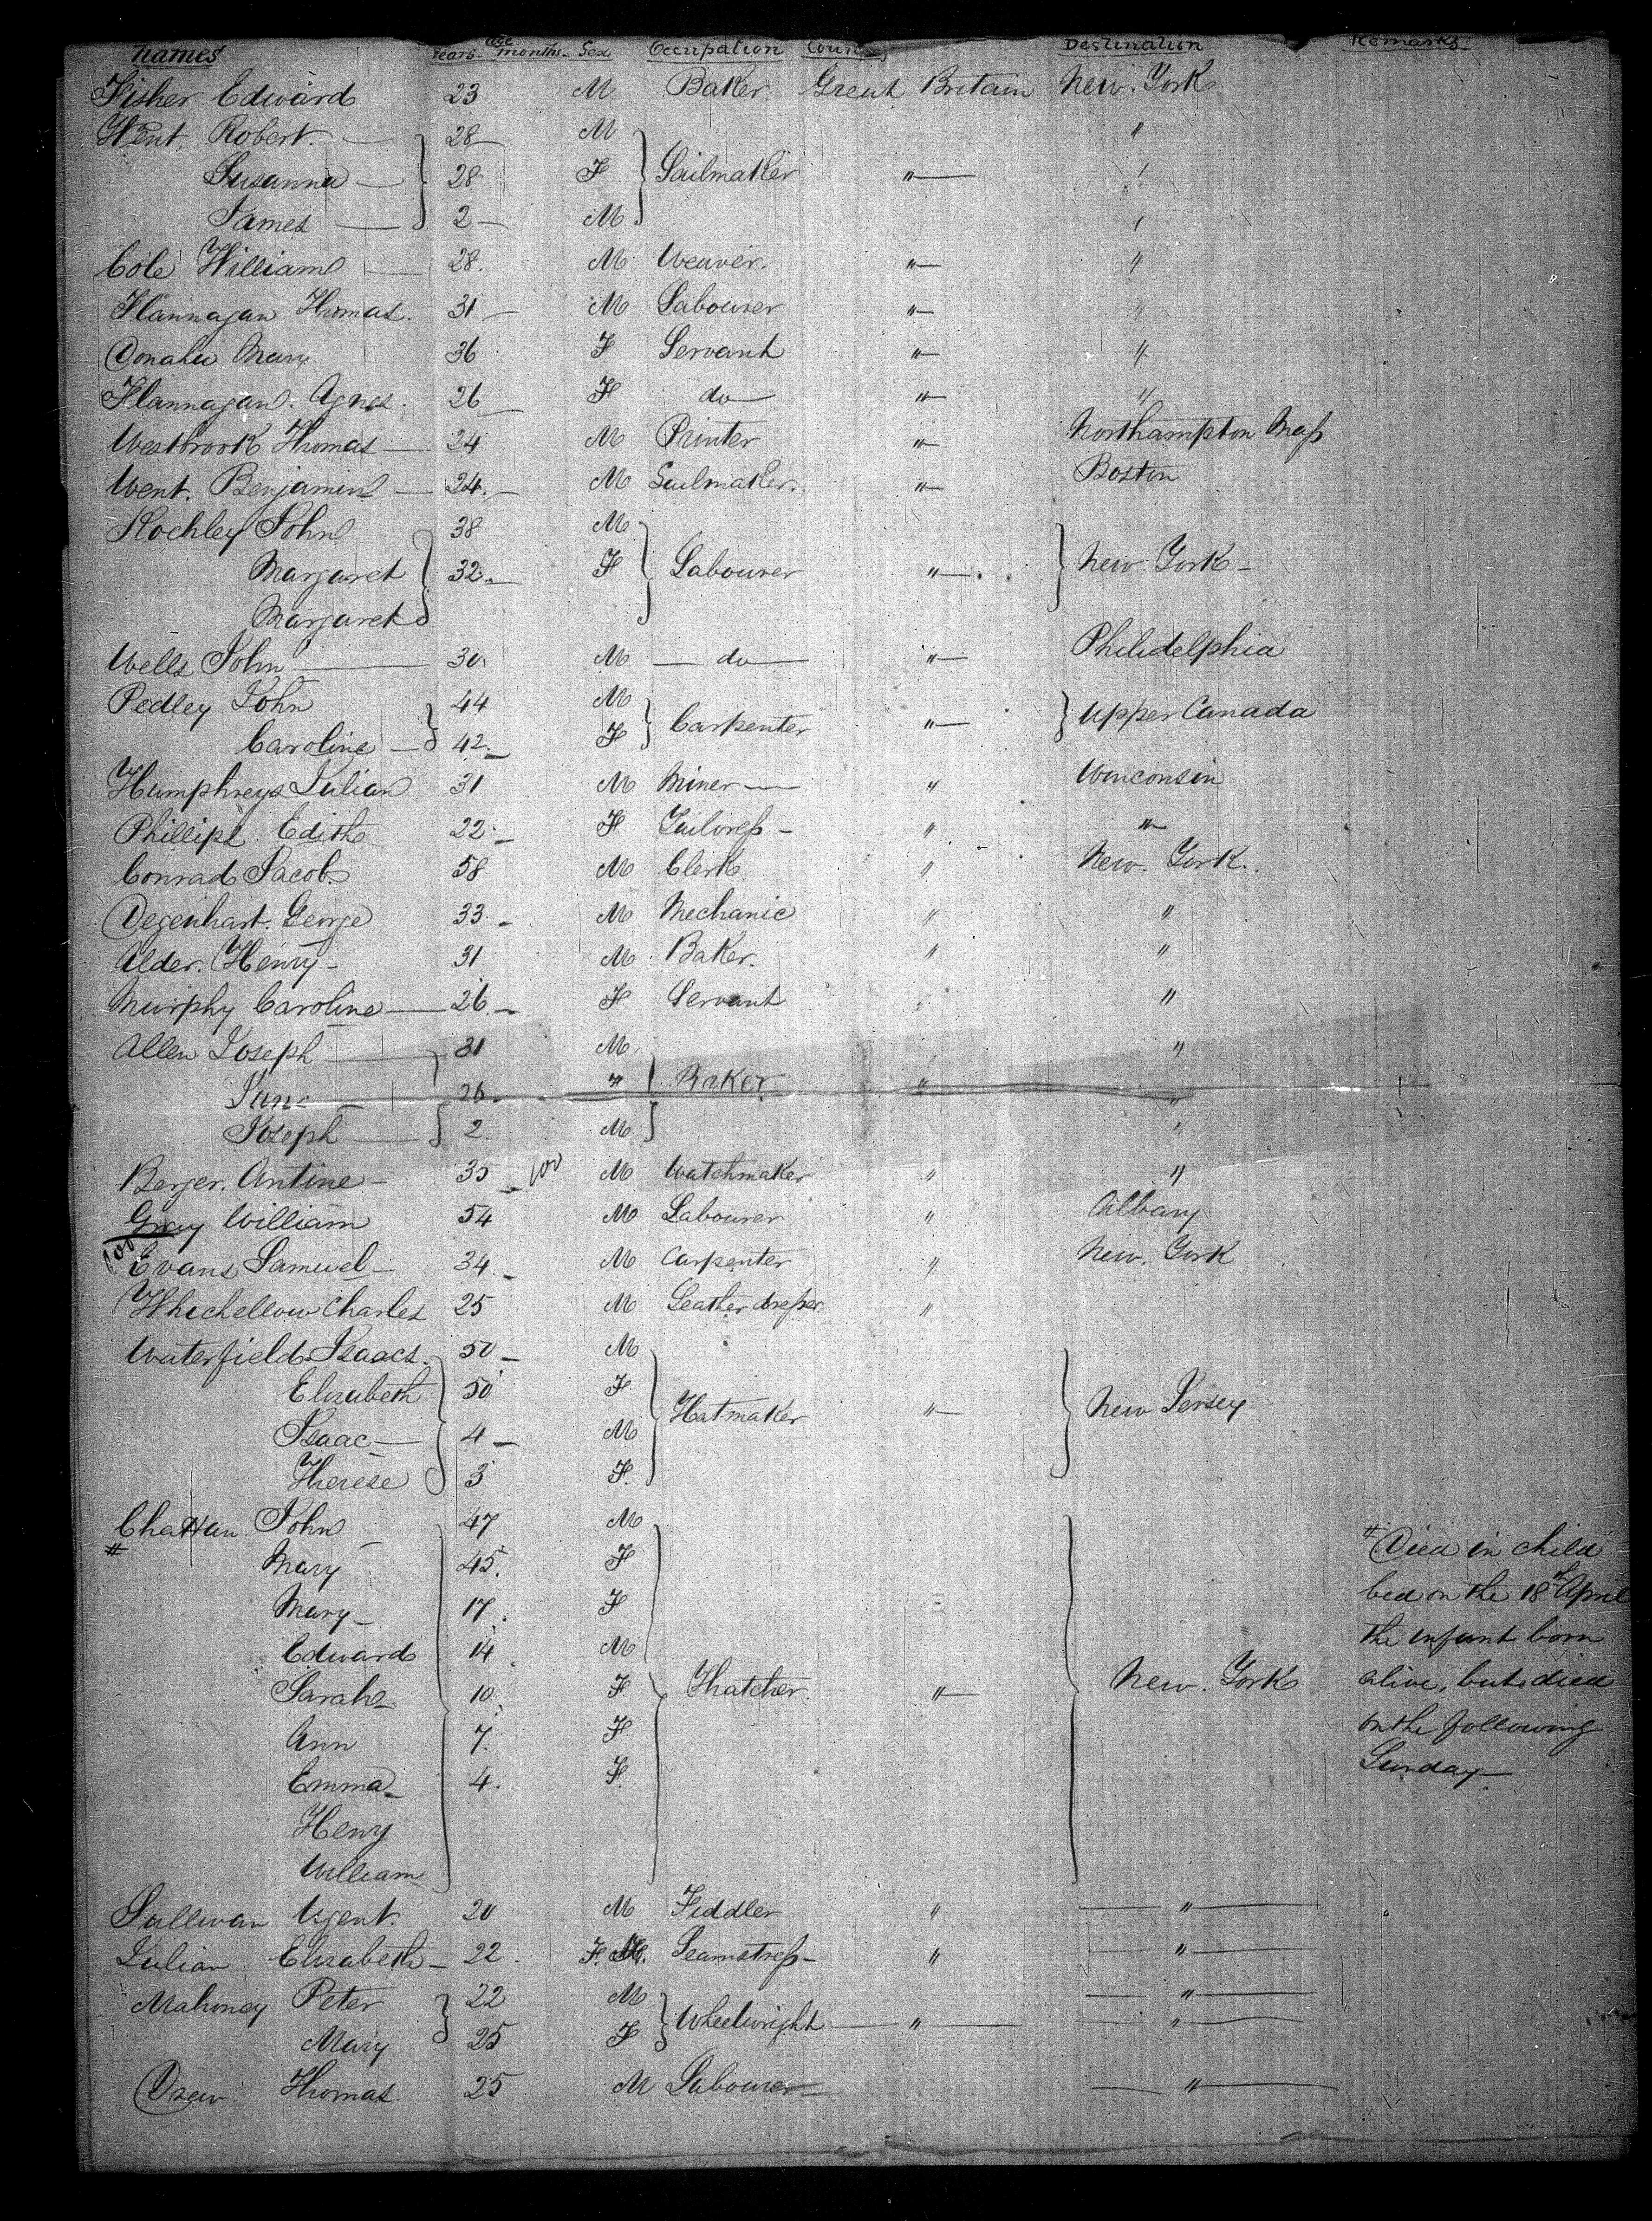 Names Years Age months Sex Occupation Coun Destination Remarks
Fisher Edward 23 M Baker Great Britain New York
Went Robert 28 M "
Susanna 28 F Sailmaker " "
James 2 M "
Cole William 28 M Weaver " "
Flannagan Thomas 31 M Labourer " "
Donahu Mary 36 F Servant " "
Flannagan Agnes 26 F do " "
Westbrook Thomas 24 M Printer " Northampton Mass
Went Benjamin 24 M Sailmaker " Boston
John 38 M
Margaret 32 F Labourer " New York
Margaret
Wells John 30 M do " Philidelphia
Pedley John 44 M
Caroline 42 F Carpenter " Upper Canada
Humphreys Julian 31 M Miner " Winconsin
Phillips Edith 22 F Tailoress " "
Conrad Jacob 58 M Clerk " New York
Degenhart George 33 M Mechanic " "
Alder Henry 31 M Baker " "
Murphy Caroline 26 F Servant " "
Allen Joseph 31 M "
Jane 26 F Baker " "
Joseph 2 M "
Berger Antine 35 100 M Watchmaker " "
Gray William 54 M Labourer " Albany
100 Evans Samuel 34 M Carpenter " New York
Whichellow Charles 25 M Leather dresser "
Waterfield Isaacs 50 M
Elizabeth 50 F
Isaac 4 M Hatmaker " New Jersey
Therese 3 F
Chattan John 47 M
# Mary 45 F # Died in child
Mary 17 F bed on the 18th April
Edward 14 M the infant born
Sarah 10 F Thatcher " New York alive, but died
Ann 7 F on the following
Emma 4 F Sunday
Henry
William
Sullivan Ugent 20 M Fiddler " "
Julian Elizabeth 22 F. Seamstress " "
Mahoney Peter 22 M "
Mary 25 F Wheelwright " "
Drew Thomas 25 M Labourer "